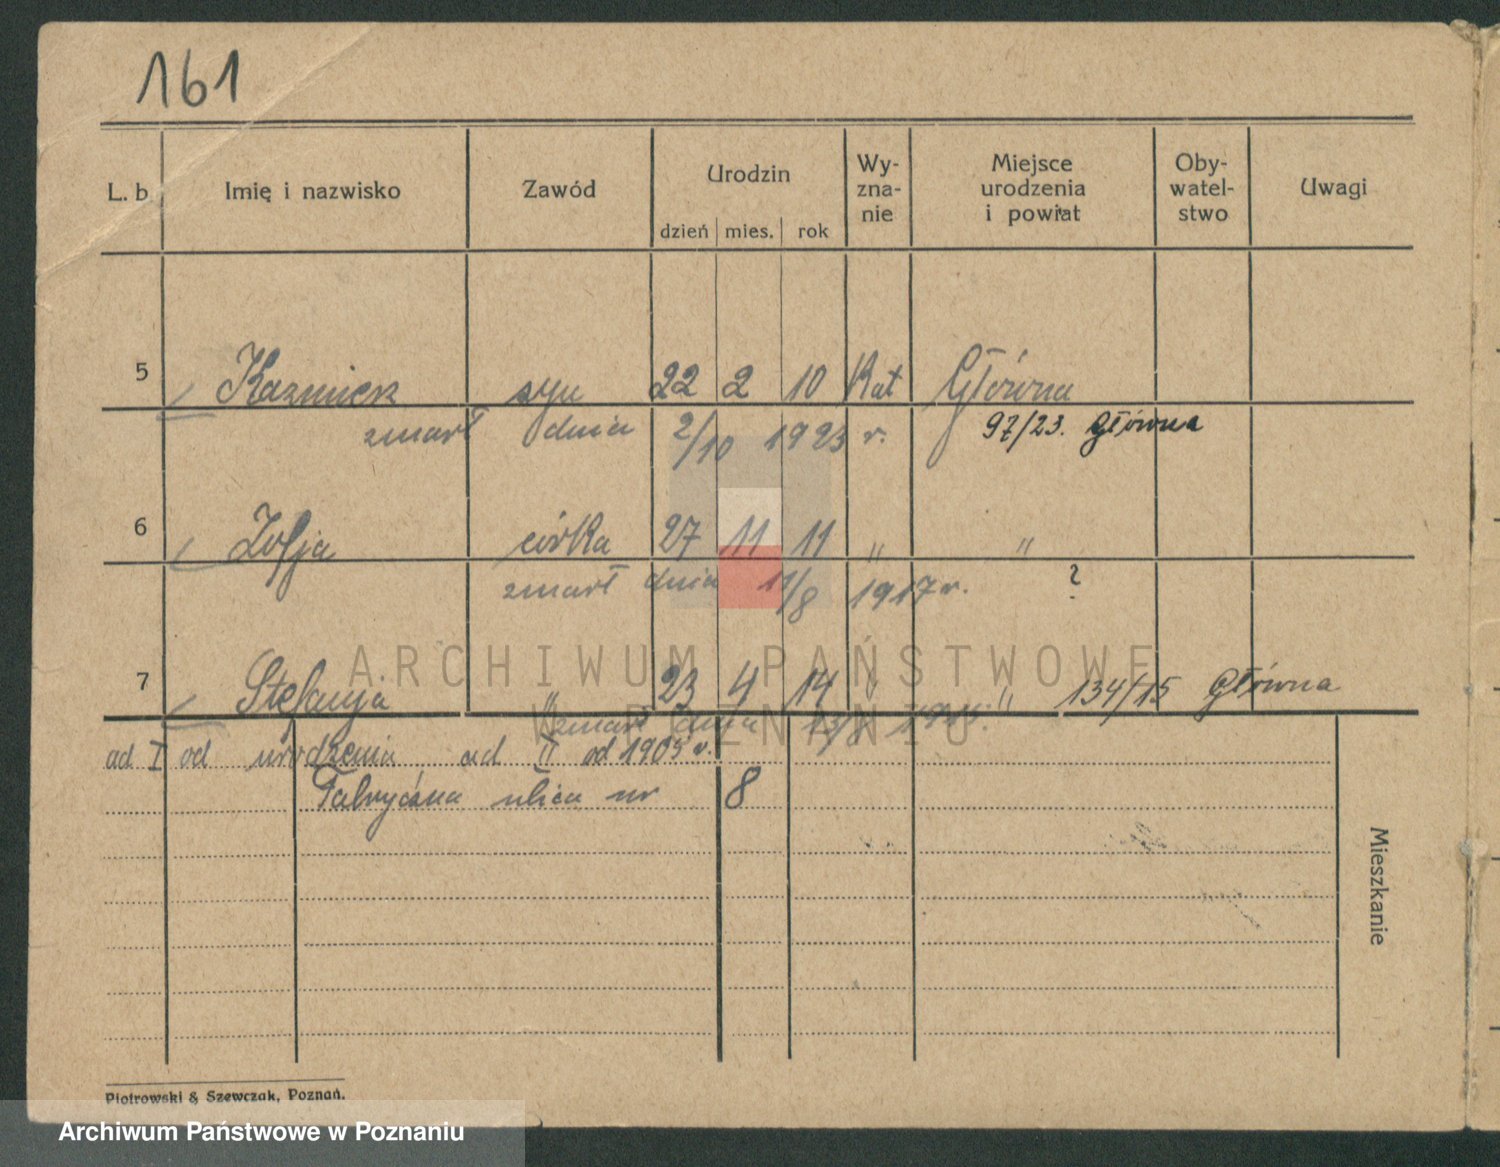 161
L. b. Imię i nazwisko Zawód Urodzin Wy-zna-nie Miejsce urodzenia i powiat Oby-watel-stwo Uwagi
dzień mies. rok
5 Kazmierz syn 22 2 10 Kat Główna
zmarł dnia 2/10 1923 r. 97/23. Główna
6 Zofja córka 27 11 11 " "
zmarł dnia 11/8 1917 r. ?
7 Stefanja " 23 4 14 " " 134/15 Główna
zmarł dnia 13/8
ad I od urodzenia ad II od 1905 r.
Fabryczna ulica nr 8
Mieszkanie
Piotrowski & Szewczak, Poznań.
ARCHIWUM PAŃSTWOWE
W POZNANIU
Archiwum Państwowe w Poznaniu